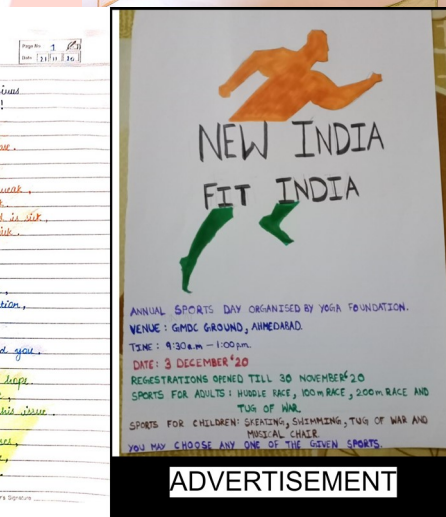 Page No. 1
Date 21 11 20
!
weak,
sick,
you.
hope
his issue.
's Signature
NEW INDIA
FIT INDIA
ANNUAL SPORTS DAY ORGANISED BY YOGA FOUNDATION.
VENUE : GMDC GROUND, AHMEDABAD.
TIME : 9:30a.m – 1:00pm
DATE: 3 DECEMBER‘20
REGESTRATIONS OPENED TILL 30 NOVEMBER‘20
SPORTS FOR ADULTS : HUDDLE RACE, 100m RACE, 200m RACE AND
TUG OF WAR.
SPORTS FOR CHILDREN: SKEATING, SWIMMING, TUG OF WAR AND
MUSICAL CHAIR.
YOU MAY CHOOSE ANY ONE OF THE GIVEN SPORTS.
ADVERTISEMENT